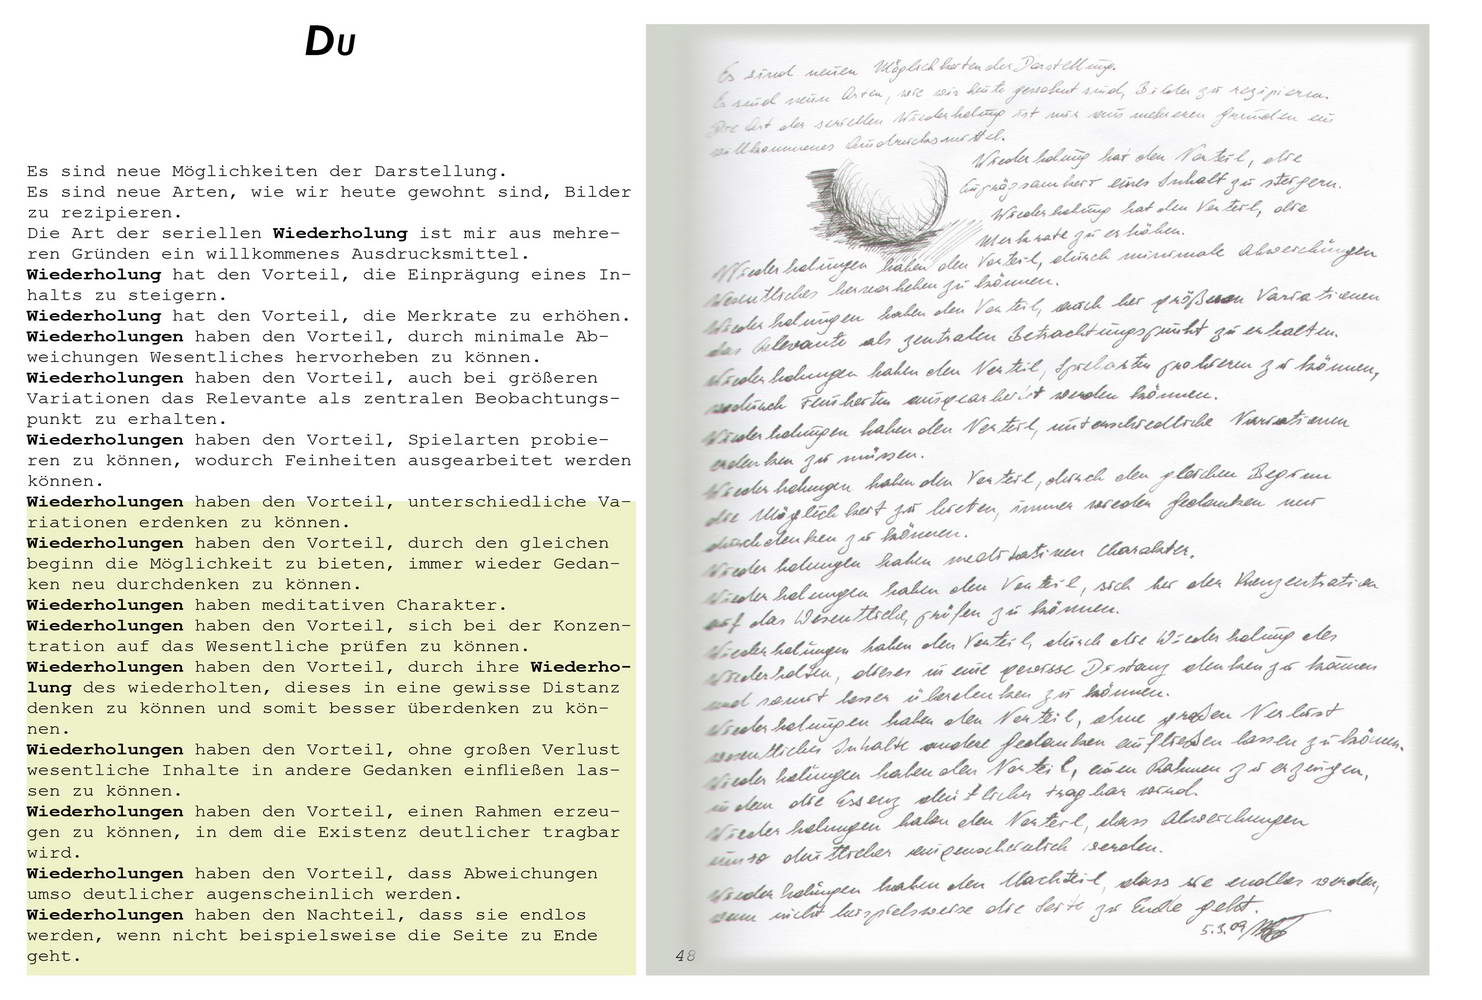 DU
Es sind neue Möglichkeiten der Darstellung.
Es sind neue Arten, wie wir heute gewohnt sind, Bilder
zu rezipieren.
Die Art der seriellen Wiederholung ist mir aus mehre-
ren Gründen ein willkommenes Ausdrucksmittel.
Wiederholung hat den Vorteil, die Einprägung eines In-
halts zu steigern.
Wiederholung hat den Vorteil, die Merkrate zu erhöhen.
Wiederholungen haben den Vorteil, durch minimale Ab-
weichungen Wesentliches hervorheben zu können.
Wiederholungen haben den Vorteil, auch bei größeren
Variationen das Relevante als zentralen Beobachtungs-
punkt zu erhalten.
Wiederholungen haben den Vorteil, Spielarten probie-
ren zu können, wodurch Feinheiten ausgearbeitet werden
können.
Wiederholungen haben den Vorteil, unterschiedliche Va-
riationen erdenken zu können.
Wiederholungen haben den Vorteil, durch den gleichen
beginn die Möglichkeit zu bieten, immer wieder Gedan-
ken neu durchdenken zu können.
Wiederholungen haben meditativen Charakter.
Wiederholungen haben den Vorteil, sich bei der Konzen-
tration auf das Wesentliche prüfen zu können.
Wiederholungen haben den Vorteil, durch ihre Wiederho-
lung des wiederholten, dieses in eine gewisse Distanz
denken zu können und somit besser überdenken zu kön-
nen.
Wiederholungen haben den Vorteil, ohne großen Verlust
wesentliche Inhalte in andere Gedanken einfließen las-
sen zu können.
Wiederholungen haben den Vorteil, einen Rahmen erzeu-
gen zu können, in dem die Existenz deutlicher tragbar
wird.
Wiederholungen haben den Vorteil, dass Abweichungen
umso deutlicher augenscheinlich werden.
Wiederholungen haben den Nachteil, dass sie endlos
werden, wenn nicht beispielsweise die Seite zu Ende
geht.
Es sind neuen Möglichkeiten der Darstellung.
Es sind neun Arten, wie wir heute gewohnt sind, Bilder zu rezipieren.
Die Art der seriellen Wiederholung ist mir aus mehreren Gründen ein
willkommenes Ausdrucksmittel.
Wiederholung hat den Vorteil, die
eines Inhalt zu steigern.
Wiederholung hat den Vorteil, die
Merkrate zu erhöhen.
Wiederholungen haben den Vorteil, durch minimale Abweichungen
Wesentliches hervorheben zu können.
Wiederholungen haben den Vorteil, auch bei größeren Variationen
das Relevante als zentralen Betrachtungspunkt zu erhalten.
Wiederholungen haben den Vorteil, Spielarten probieren zu können,
wodurch Feinheiten ausgearbeitet werden können.
Wiederholungen haben den Vorteil, unterschiedliche Variationen
erdenken zu müssen.
Wiederholungen haben den Vorteil, durch den gleichen Beginn
die Möglichkeit zu bieten, immer wieder Gedanken neu
durchdenken zu können.
Wiederholungen haben meditativen Charakter.
Wiederholungen haben den Vorteil, sich bei der Konzentration
auf das Wesentliche prüfen zu können.
Wiederholungen haben den Vorteil, durch die Wiederholung des
Wiederholten, dieses in eine gewisse Distanz denken zu können
und somit besser überdenken zu können.
Wiederholungen haben den Vorteil, ohne großen Verlust
wesentliches Inhalte andere Gedanken einfließen lassen zu können.
Wiederholungen haben den Vorteil, einen Rahmen zu erzeugen,
in dem die Essenz deutlicher tragbar wird.
Wiederholungen haben den Vorteil, dass Abweichungen
umso deutlicher augenscheinlich werden.
Wiederholungen haben den Nachteil, dass sie endlos werden,
wenn nicht beispielsweise die Seite zu Ende geht.
5.3.09
48